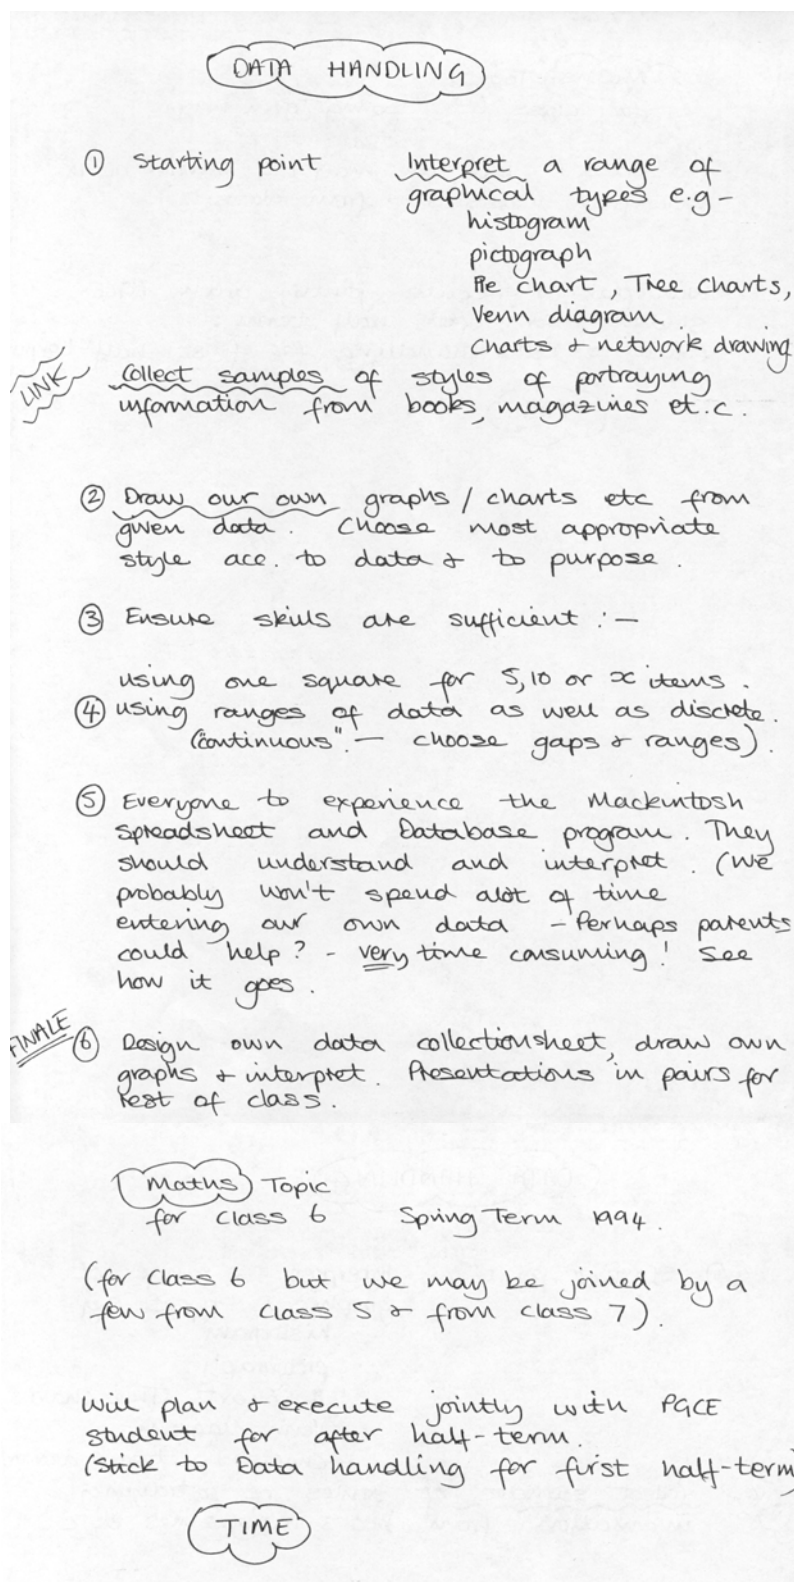 DATA HANDLING
① Starting point Interpret a range of
graphical types e.g -
histogram
pictograph
Pie chart, Tree charts,
Venn diagram
Charts & network drawing
LINK Collect samples of styles of portraying
information from books, magazines et.c.
② Draw our own graphs / charts etc from
given data. Choose most appropriate
style acc. to data & to purpose.
③ Ensure skills are sufficient :-
using one square for 5, 10 or x items.
④ using ranges of data as well as discrete.
("continuous" - choose gaps & ranges).
⑤ Everyone to experience the Mackintosh
Spreadsheet and Database program. They
should understand and interpret. (We
probably won't spend alot of time
entering our own data - Perhaps parents
could help? - very time consuming! See
how it goes.
FINALE ⑥ Design own data collectionsheet, draw own
graphs & interpret. Presentations in pairs for
rest of class.
Maths Topic
for Class 6 Spring Term 1994.
(for Class 6 but we may be joined by a
few from Class 5 & from class 7).
Will plan & execute jointly with PGCE
student for after half-term.
(Stick to Data handling for first half-term)
TIME